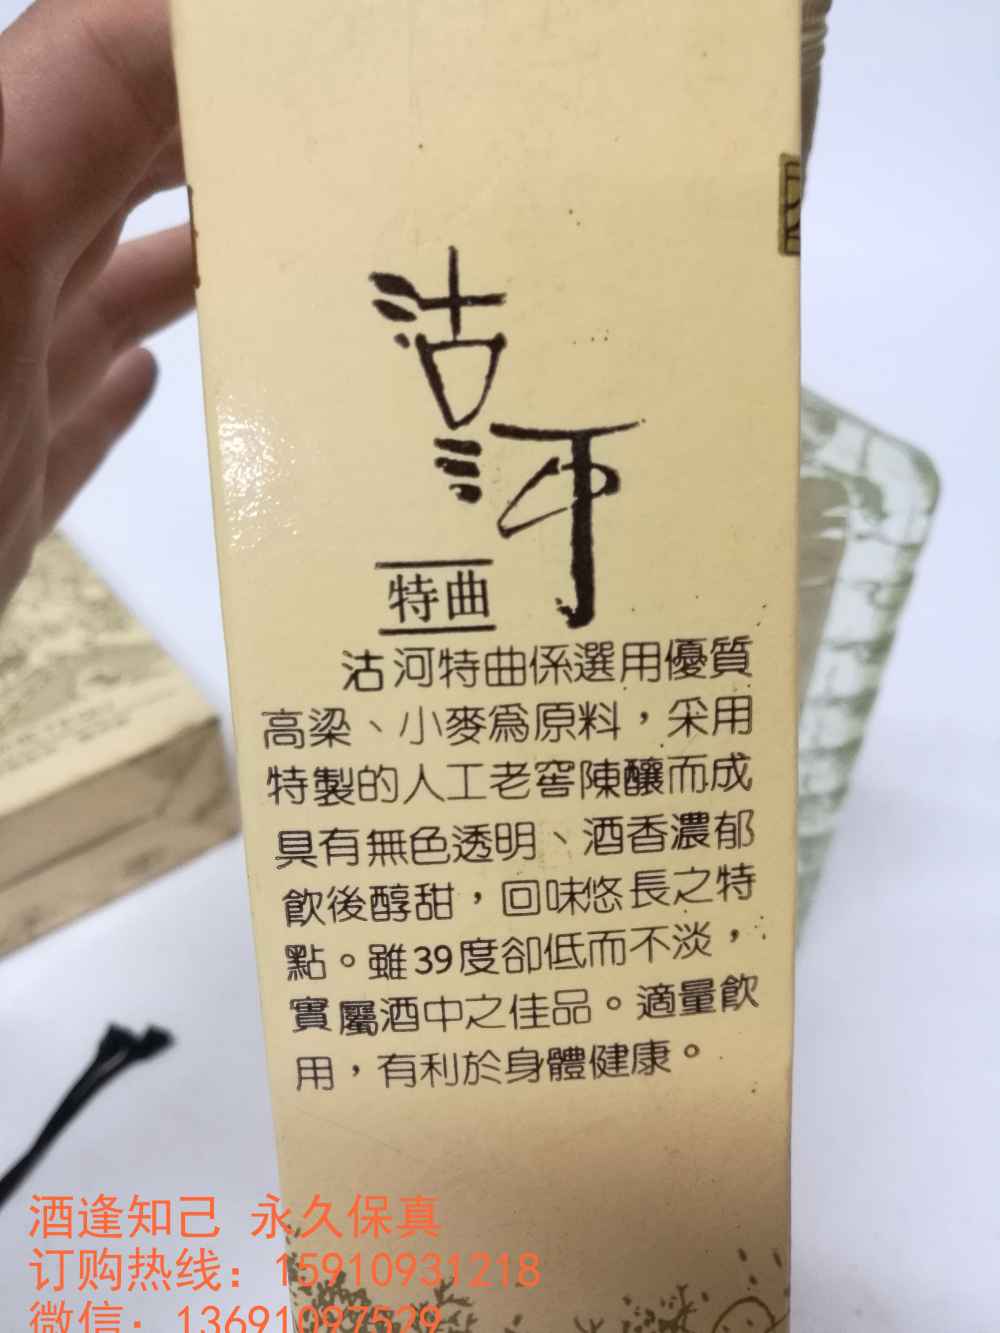 沽河
特曲
沽河特曲係選用優質
高梁、小麥爲原料，采用
特製的人工老窖陳釀而成
具有無色透明、酒香濃郁
飲後醇甜，回味悠長之特
點。雖39度卻低而不淡，
實屬酒中之佳品。適量飲
用，有利於身體健康。
酒逢知己 永久保真
订购热线：15910931218
微信：13691097529